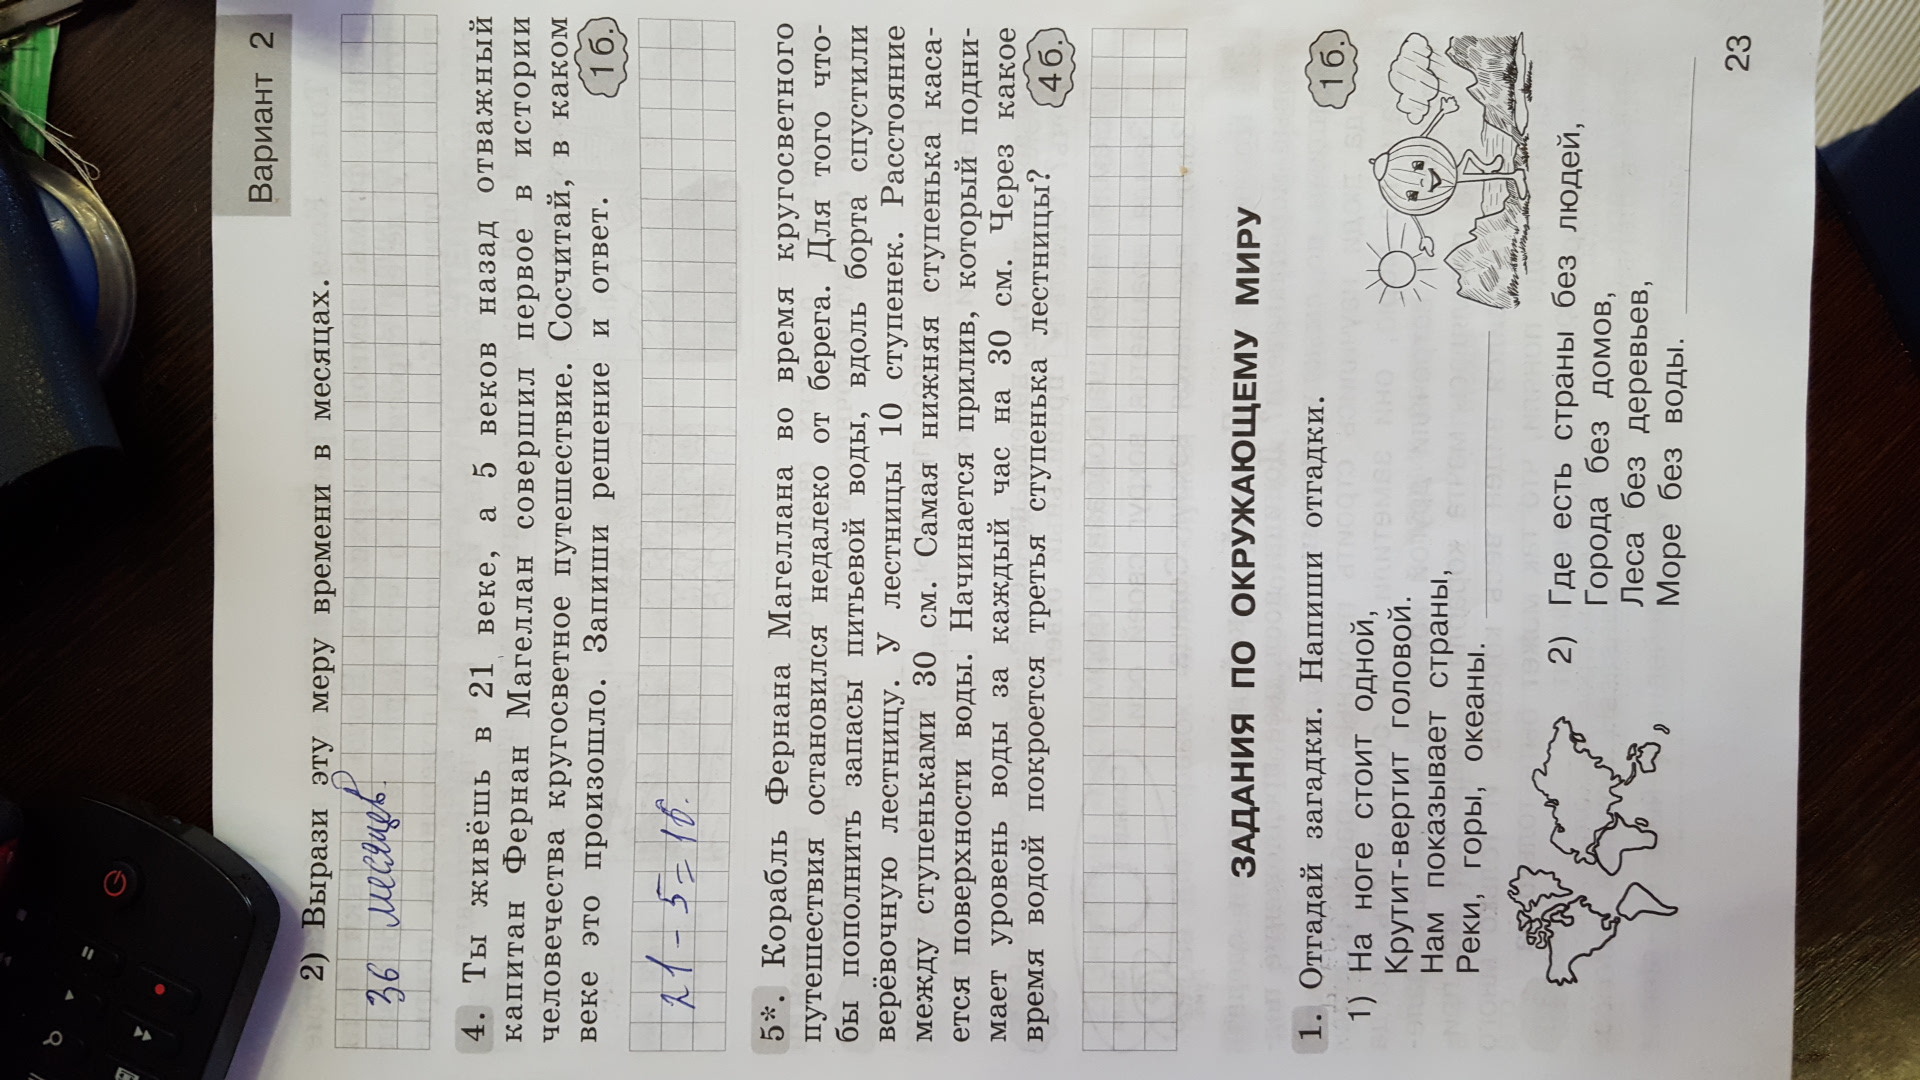 Вариант 2
2) Вырази эту меру времени в месяцах.
36 месяцев.
4. Ты живёшь в 21 веке, а 5 веков назад отважный
капитан Фернан Магеллан совершил первое в истории
человечества кругосветное путешествие. Сосчитай, в каком
веке это произошло. Запиши решение и ответ.
1б.
21 - 5 = 16.
5*. Корабль Фернана Магеллана во время кругосветного
путешествия остановился недалеко от берега. Для того что-
бы пополнить запасы питьевой воды, вдоль борта спустили
верёвочную лестницу. У лестницы 10 ступенек. Расстояние
между ступеньками 30 см. Самая нижняя ступенька каса-
ется поверхности воды. Начинается прилив, который подни-
мает уровень воды за каждый час на 30 см. Через какое
время водой покроется третья ступенька лестницы?
4б.
ЗАДАНИЯ ПО ОКРУЖАЮЩЕМУ МИРУ
1. Отгадай загадки. Напиши отгадки.
1б.
1) На ноге стоит одной,
Крутит-вертит головой.
Нам показывает страны,
Реки, горы, океаны.
2) Где есть страны без людей,
Города без домов,
Леса без деревьев,
Море без воды.
23